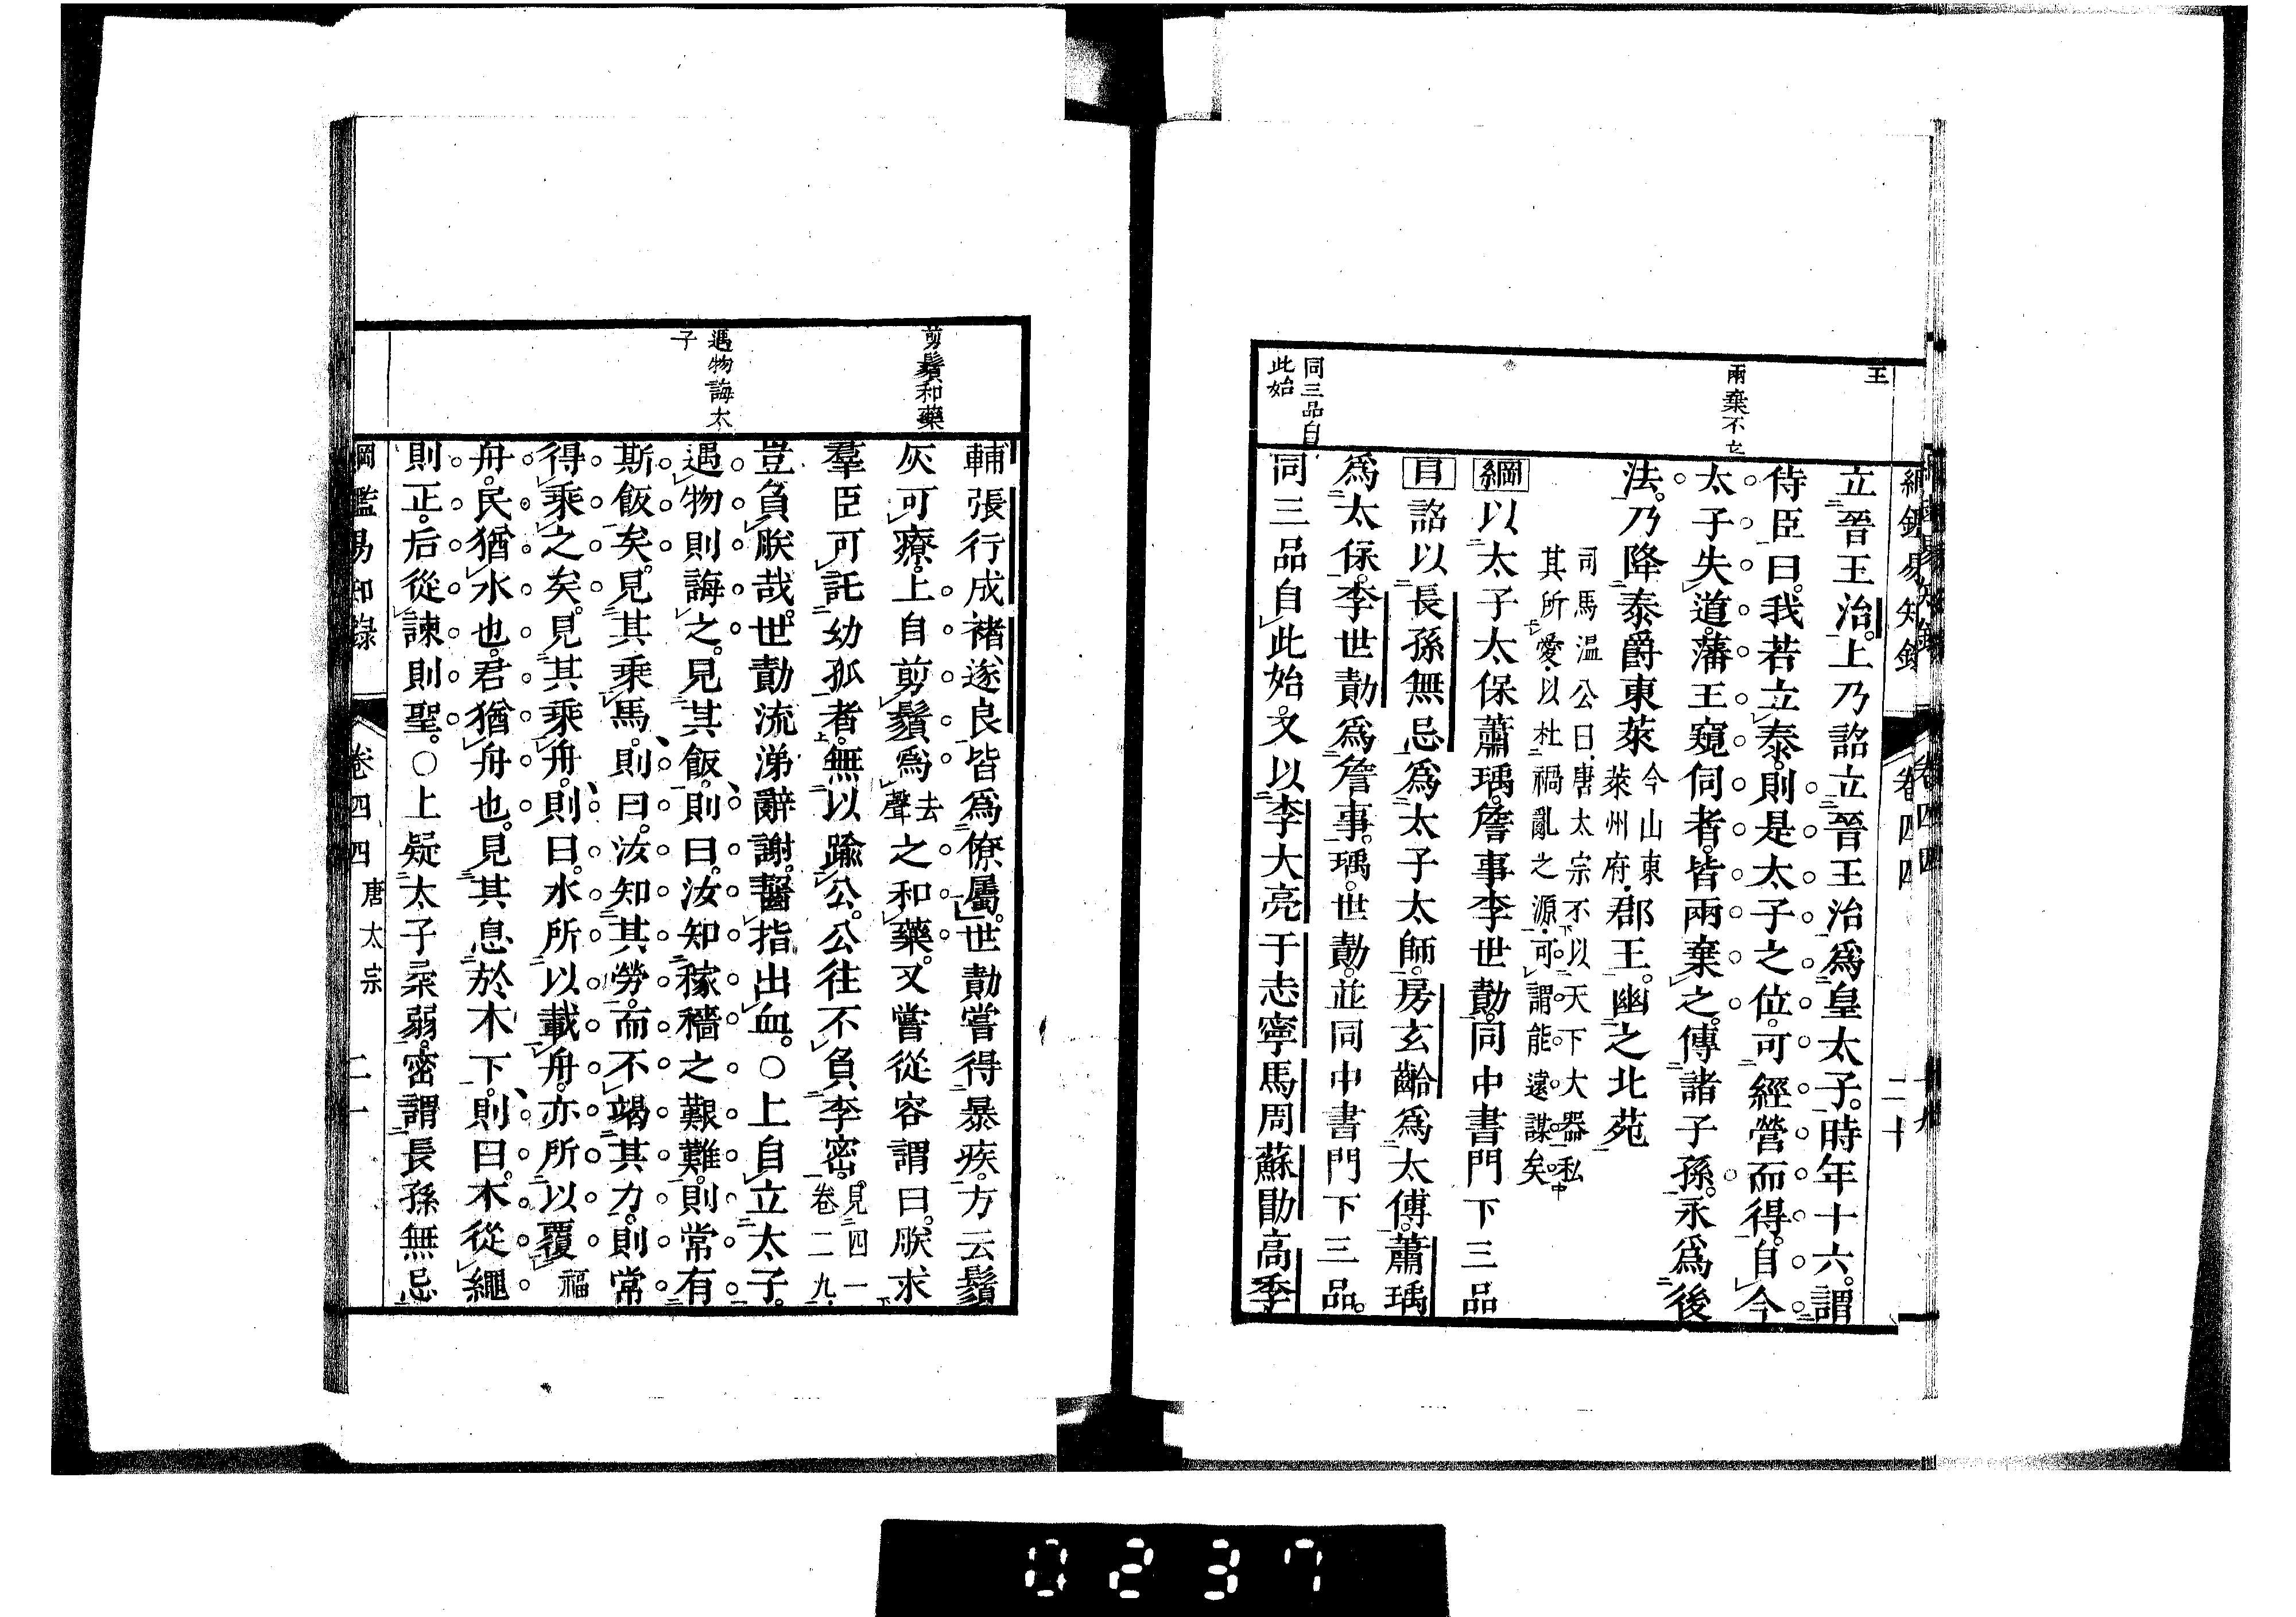 王
兩棄不立
同三品自
此始
立晉王治。上乃詔立晉王治爲皇太子。時年十六。謂
侍臣曰。我若立泰。則是太子之位。可經營而得。自今
太子失道。藩王窺伺者。皆兩棄之。傳諸子孫。永爲後
法。乃降泰爵東萊今山東萊州府。郡王。幽之北苑
司馬溫公曰。唐太宗不以天下大器私
其所愛。以杜禍亂之源。可謂能遠謀矣
綱以太子太保蕭瑀。詹事李世勣。同中書門下三品
目詔以長孫無忌爲太子太師。房玄齡爲太傅。蕭瑀
爲太保。李世勣爲詹事。瑀。世勣。並同中書門下三品。
同三品自此始。又以李大亮于志寧馬周蘇勖高季
剪鬚和藥
遇物誨太
子
輔張行成褚遂良皆爲僚屬。世勣嘗得暴疾。方云鬚
灰可療。上自剪鬚爲去聲之和藥。又嘗從容謂曰。朕求
羣臣可託幼孤者。無以踰公。公往不負李密。見四一卷二九。
豈負朕哉。世勣流涕辭謝。齧指出血。○上自立太子。
遇物則誨之。見其飯。則曰。汝知稼穡之艱難。則常有
斯飯矣。見其乘馬。則曰。汝知其勞。而不竭其力。則常
得乘之矣。見其乘舟。則曰。水所以載舟。亦所以覆福
舟。民猶水也。君猶舟也。見其息於木下。則曰。木從繩
則正。后從諫則聖。○上疑太子柔弱。密謂長孫無忌
綱鑑易知錄 卷四四 唐太宗 二一
0237